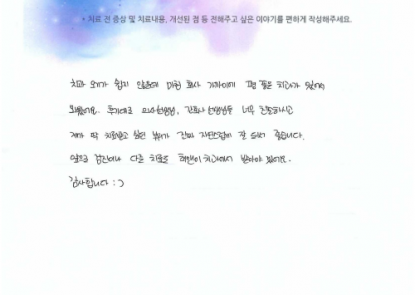 * 치료 전 증상 및 치료내용, 개선된 점 등 전해주고 싶은 이야기를 편하게 작성해주세요.
치과 오기가 쉽지 않은데 마침 회사 가까이에 평 좋은 치과가 있어서
와봤어요. 후기대로 의사선생님, 간호사선생님들 너무 친절하시고
제가 딱 치료받고 싶던 부위가 진짜 자연스럽게 잘 되서 좋습니다.
앞으로 검진이나 다른 치료도 치과에서 받아야 겠어요.
감사합니다 :)